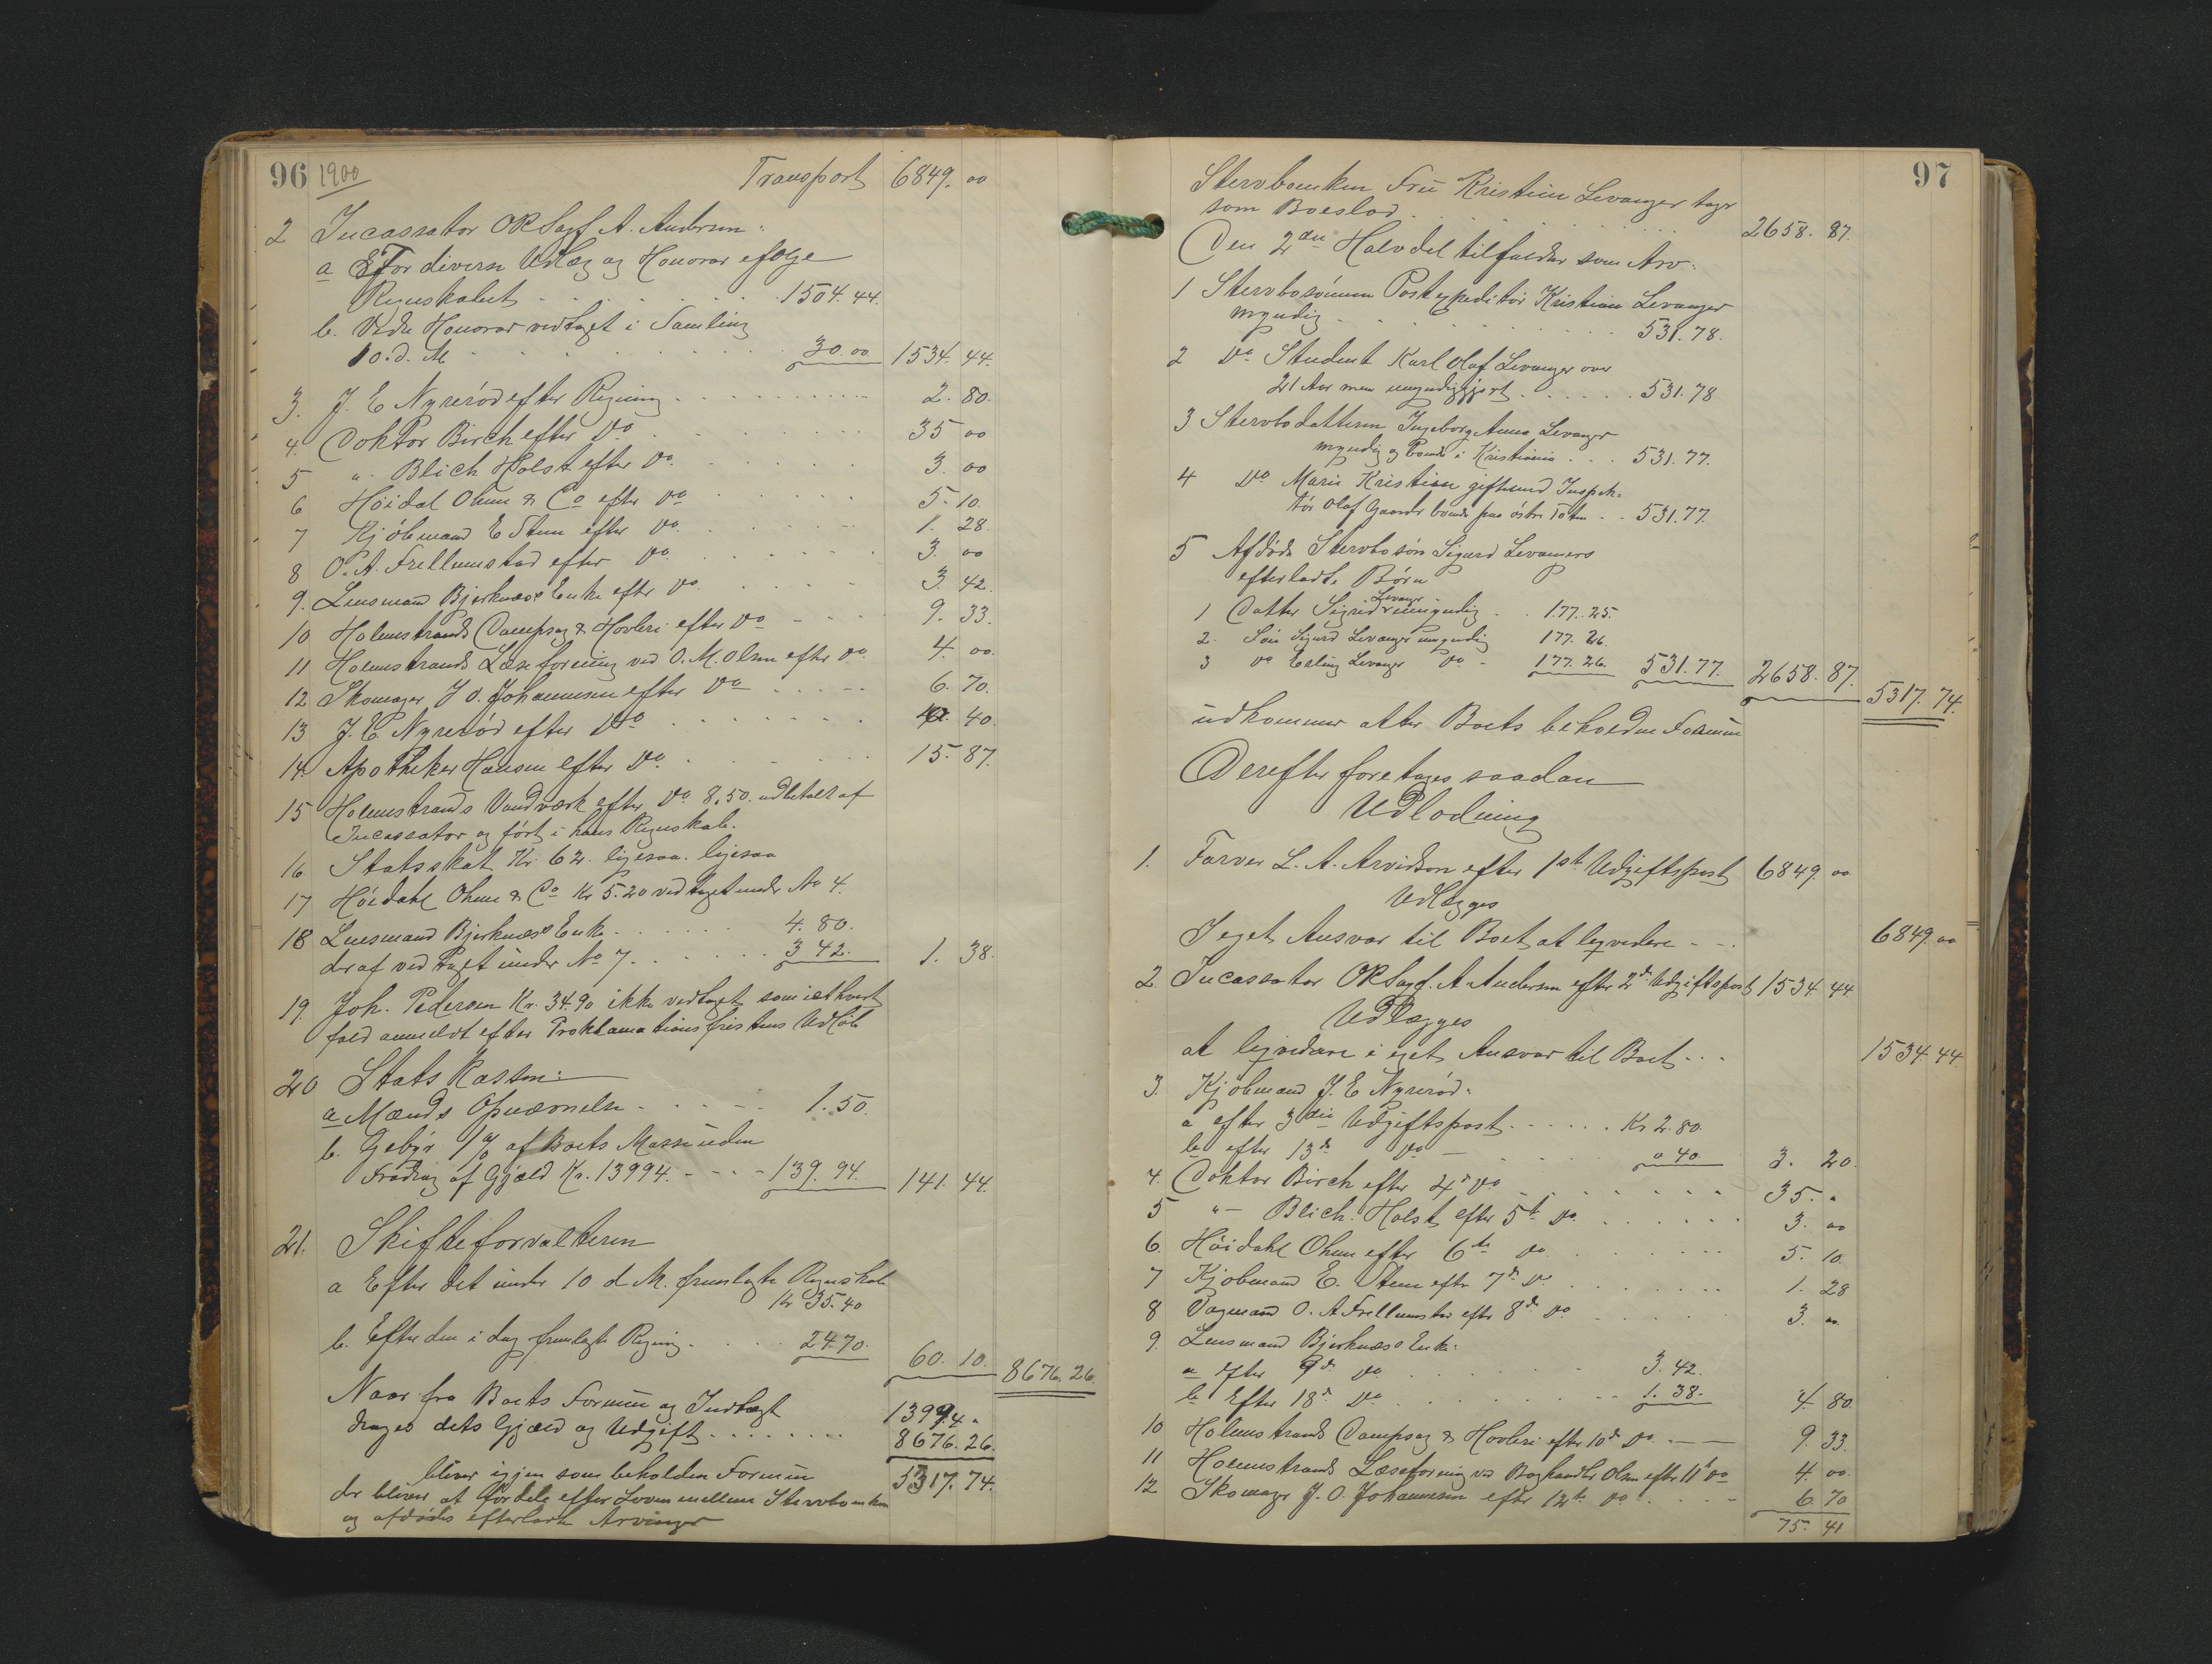 96 1900
Transport 6849. 00
2 Incassator ORSagf A. Andersen:
a For diverse Udlæg og Honorar efølge
Regnskabet . . . 1504. 44.
b. Vidre Honorar vedtaget i Samling
10. d. M . . . 30.00 1534. 44.
3. J. E Nyrerød efter Regning . . . 2. 80.
4. Doktor Birch efter Do . . . 35 00
5 " Blich Holst efter Do . . . 3. 00
6 Höidal Ohme & Co efter Do . . . 5. 10.
7 Kjöbmand E Steen efter Do . . . 1. 28.
8 O. A. Frellumstad efter Do . . . 3. 00
9. Lensmand Bjerknæs's Enke efter Do . . . 3. 42.
10 Holmestrands Dampsag & Høvleri efter Do . . . 9. 33.
11 Holmestrands Læseforening ved O. M. Olsen efter Do 4. 00.
12 Skomager J O. Johannesen efter Do . . . 6. 70.
13 J. E. Nyrerød efter Do . . . 40.
14. Apotheker Hansen efter Do . . . 15. 87.
15 Holmestrands Vandværk efter Do 8,50. udbetalt af
Incassator og ført i hans Regnskab.
16 Statsskat Kr. 62. ligesaa. ligesaa
17 Höidahl Ohme & Co Kr 5.20 vedtaget under No 4.
18 Lensmand Bjerknæs's Enke . . . 4. 80.
deraf vedtaget under No 7 . . . 3 42. 1. 38.
19. Joh. Pedersen Kr. 34.90 ikke vedtaget som iethvert
fald anmeldt efter Proklamationsfristens Udløb
20 Statskassen:
a Mænds Opnævnelse . . . 1. 50.
b. Gebyr 1% af Boets Masse uden
Fradrag af Gjæld Kr. 13994. - - - 139. 94. 141. 44.
21. Skifteforvalteren
a Efter det under 10 d M. fremlagte Regnskab
Kr 35.40
b. Efter den i dag fremlagte Regning . . . 24.70. 60. 10. 8676. 26.
Naar fra Boets Formue og Indtægt 13994.
drages dets Gjæld og Udgift . . . 8676. 26.
bliver igjen som beholden Formue 5317. 74.
der bliver at fordele efter Loven mellem Stervboenken
og afdødes efterladte Arvinger
97
Stervboenken Fru Kristine Levanger tager
som Boeslod . . . 2658. 87.
Den 2den Halvdel tilfalder som Arv:
1 Stervbosønnen Postexpeditör Kristian Levanger
myndig . . . 531. 78.
2 Do Student Karl Olaf Levanger over
21 Aar men umyndiggjort . . . 531. 78
3 Stervbodatteren Ingeborg Anna Levanger
myndig og boende i Kristiania . . . 531. 77.
4 Do Marie Kristine gift med Inspek-
tör Olaf Gaarder boende paa østre Toten . . 531. 77.
5 Afdøde Stervbosøn Sigurd Levangers
efterladte Børn
1 Datter Sigrid Levanger umyndig . . 177. 25.
2. Søn Sigurd Levanger umyndig 177. 26.
3 Do Erling Levanger Do - 177. 26. 531. 77. 2658. 87.
udkommer atter Boets beholdne Formue 5317. 74.
Derefter foretages saadan
Udlodning
1. Farver L. A. Arvidson efter 1ste Udgiftspost 6849. 00
Udlægges
I eget Ansvar til Boet at liqvidere - - - 6849. 00
2. Incassator ORSagf. A Andersen efter 2d Udgiftspost 1534. 44.
Udlægges
at liqvidere i eget Ansvar til Boet - - - 1534. 44.
3. Kjöbmand J. E Nyrerød.
a efter 3die Udgiftspost . . . Kr 2. 80.
b. efter 13d Do — . . . " 40. 3. 20.
4. Doktor Birch efter 4d Do . . . 35. "
5 "— Blich. Holst efter 5te Do . . . 3. 00
6. Höidahl Ohme efter 6te Do . . . 5. 10.
7 Kjöbmand E. Steen efter 7d Do . . . 1. 28
8 Vognmand O. A Frellumstad efter 8d Do . . . 3. 00.
9. Lensmand Bjerknæs's Enke:
a efter 9d Do . . . 3. 42.
b. Efter 18d Do . . . 1. 38. 4. 80.
10 Holmestrands Dampsag & Høvleri efter 10d Do . — 9. 33.
11 Holmestrands Læseforening ved Boghandler Olsen efter 11t Do 4. 00.
12 Skomager J. O. Johannesen efter 12te Do . . . 6. 70
75. 41